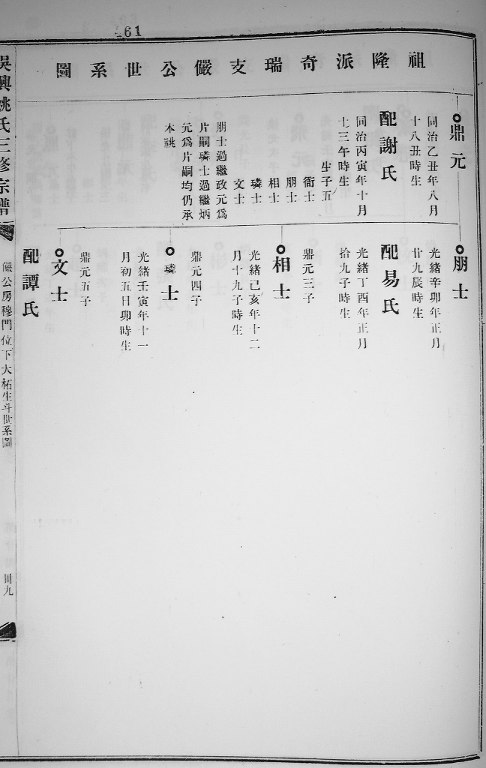 61
祖隆派奇瑞支儼公世系圖
鼎元
同治乙丑年八月
十八丑時生
配謝氏
同治丙寅年十月
十三午時生
生子五
衙士
朋士
相士
璘士
文士
朋士過繼政元爲
片嗣璘士過繼炳
元爲片嗣均仍承
本祧
朋士
光緒辛卯年正月
廿九辰時生
配易氏
光緒丁酉年正月
拾九子時生
鼎元三子
相士
光緒己亥年十二
月十九子時生
鼎元四子
璘士
光緒壬寅年十一
月初五日卯時生
鼎元五子
文士
配譚氏
吳興姚氏三修宗譜
儼公房穆門位下大柘生斗世系圖
卌九